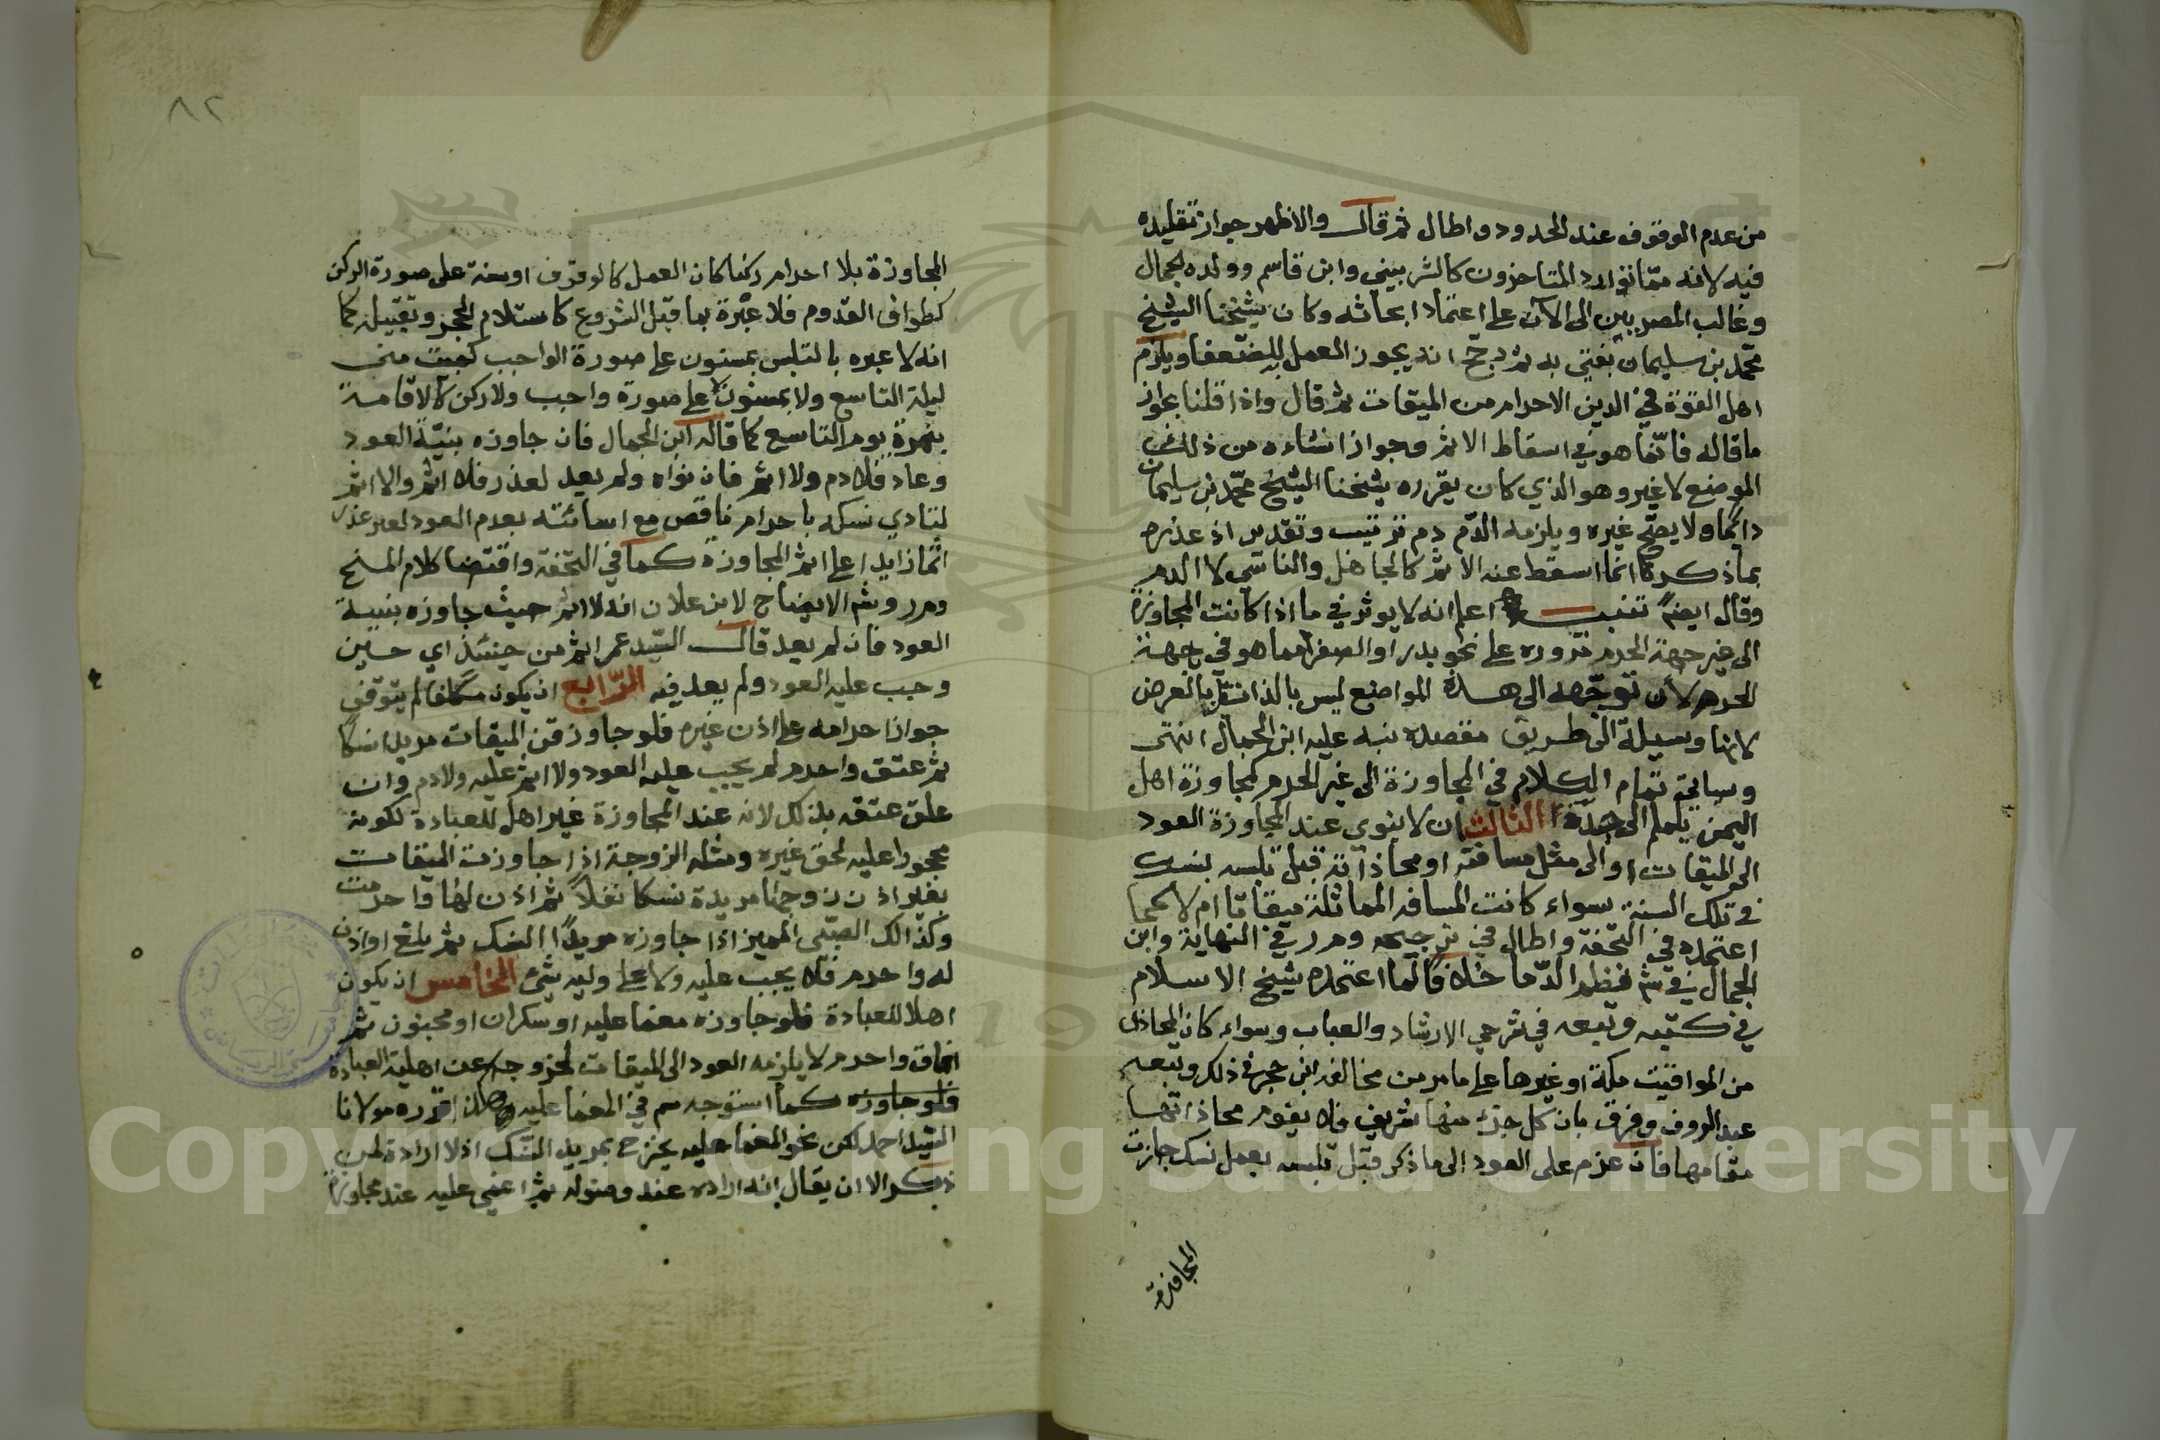 من عدم الوقوف عند الحدود واطال ثم قال والاظهر جواز تقليده
فيه لانه مما توارد المتاخرون كالشربيني وابن قاسم وولده الجمال
وغالب المصريين الى الآن على اعتماد ابحاثه وكان شيخنا الشيخ
محمد بن سليمان يفتي به ثم رجح انه يجوز العمل به للضعفا ويلزم
اهل القوة في الدين الاحرام من الميقات ثم قال واذا قلنا بجواز
ما قاله فانما هو في اسقاط الاثم وجواز انشاءه من ذلك
الموضع لا غير وهو الذي كان يقرره شيخنا الشيخ محمد بن سليمان
دائما ولا يصح غيره ويلزمه الدم دم ترتيب وتقدير اذ عذره
بما ذكر كما انما اسقط عنه الاثم كالجاهل والناسي لا الدم
وقال ايضا تنبيه اعلم انه لا يوثر في ما اذا كانت المجاوزة
الى غير جهة الحرم مروره على نحو بدر او الصفرا مما هو في جهة
الحرم لأن توجهه الى هذه المواضع ليس بالذات بل بالعرض
لانها وسيلة الى طريق مقصده نبه عليه ابن الجمال انتهى
وسياتي تمام الكلام في المجاوزة الى غير الحرم كمجاوزة اهل
اليمن يلملم الى جدة الثالث ان لا ينوي عند المجاوزة العود
الى الميقات او الى مثل مسافته او محاذاته قبل تلبسه بنسك
في تلك السنة سواء كانت المسافه المماثلة ميقاتا ام لا كما
اعتمده في التحفة واطال في ترجيحه ومر ر في النهاية وابن
الجمال في شم نظم الدما خلافا لما اعتمده شيخ الاسلام
في كتبه وتبعه في شرحي الارشاد والعباب وسواء كان المحاذى
من المواقيت مكة او غيرها على ما مر من مخالفه ابن حجر في ذلك وتبعه
عبد الروف وفرق بان كل جزء منها شريف فلا يقوم محاذاتها
مقامها فان عزم على العود الى ما ذكر قبل تلبسه بعمل نسك جازت
المجاوزة
٨٢
المجاوزة بلا احرام ركنا كان العمل كالوقوف اوسنة على صورة الركن
كطواف القدوم فلا عبرة بما قبل الشروع كاستلام الحجر وتقبيله كما
انه لا عبره بالتلبس بمسنون على صورة الواجب كمبيت منى
ليلة التاسع ولا بمسنون لا على صورة واجب ولا ركن كالاقامة
بنمرة يوم التاسع كما قاله ابن الجمال فان جاوزه بنية العود
وعاد فلا دم ولا اثم فان نواه ولم يعد لعذر فلا اثم والا اثم
لتادي نسكه باحرام ناقص مع اسائته بعدم العود لغير عذر
اثما زايدا على اثم المجاوزة كما في التحفة واقتضا كلام المنح
ومر ر وشم الايضاح لابن علان انه لا اثم حيث جاوزه بنية
العود فان لم يعد قال السيد عمر اثم من حينئذ اي حين
وجب عليه العود ولم يعد فيه الرابع ان يكون مكلفا لم يتوقف
جواز احرامه على اذن غيره فلو جاوز قن الميقات مريدا نسكا
ثم عتق واحرم لم يجب عليه العود ولا اثم عليه ولا دم وان
علق عتقه بذلك لانه عند المجاوزة غير اهل للعبادة لكونه
محجورا عليه لحق غيره ومثله الزوجة اذا جاوزت الميقات
بغير اذن زوجها مريدة نسكا نفلا ثم اذن لها واحرمت
وكذالك الصبي المميز اذا جاوزه مريدا النسك ثم بلغ او اذن
له واحرم فلا يجب عليه ولا على وليه شئ الخامس ان يكون
اهلا للعبادة فلو جاوزه مغما عليه او سكران او مجنون ثم
افاق واحرم لا يلزمه العود الى الميقات لخروجه عن اهلية العبادة
فلو جاوزه كما استوجه سم في المغما عليه وهذا قرره مولانا
السيد احمد لكن نحو المغما عليه يخرج بمريد النسك اذ لا ارادة لمن
ذكر الا ان يقال انه اراده عند وصوله ثم اغمي عليه عند مجاوزة
Copyright © King Saud University